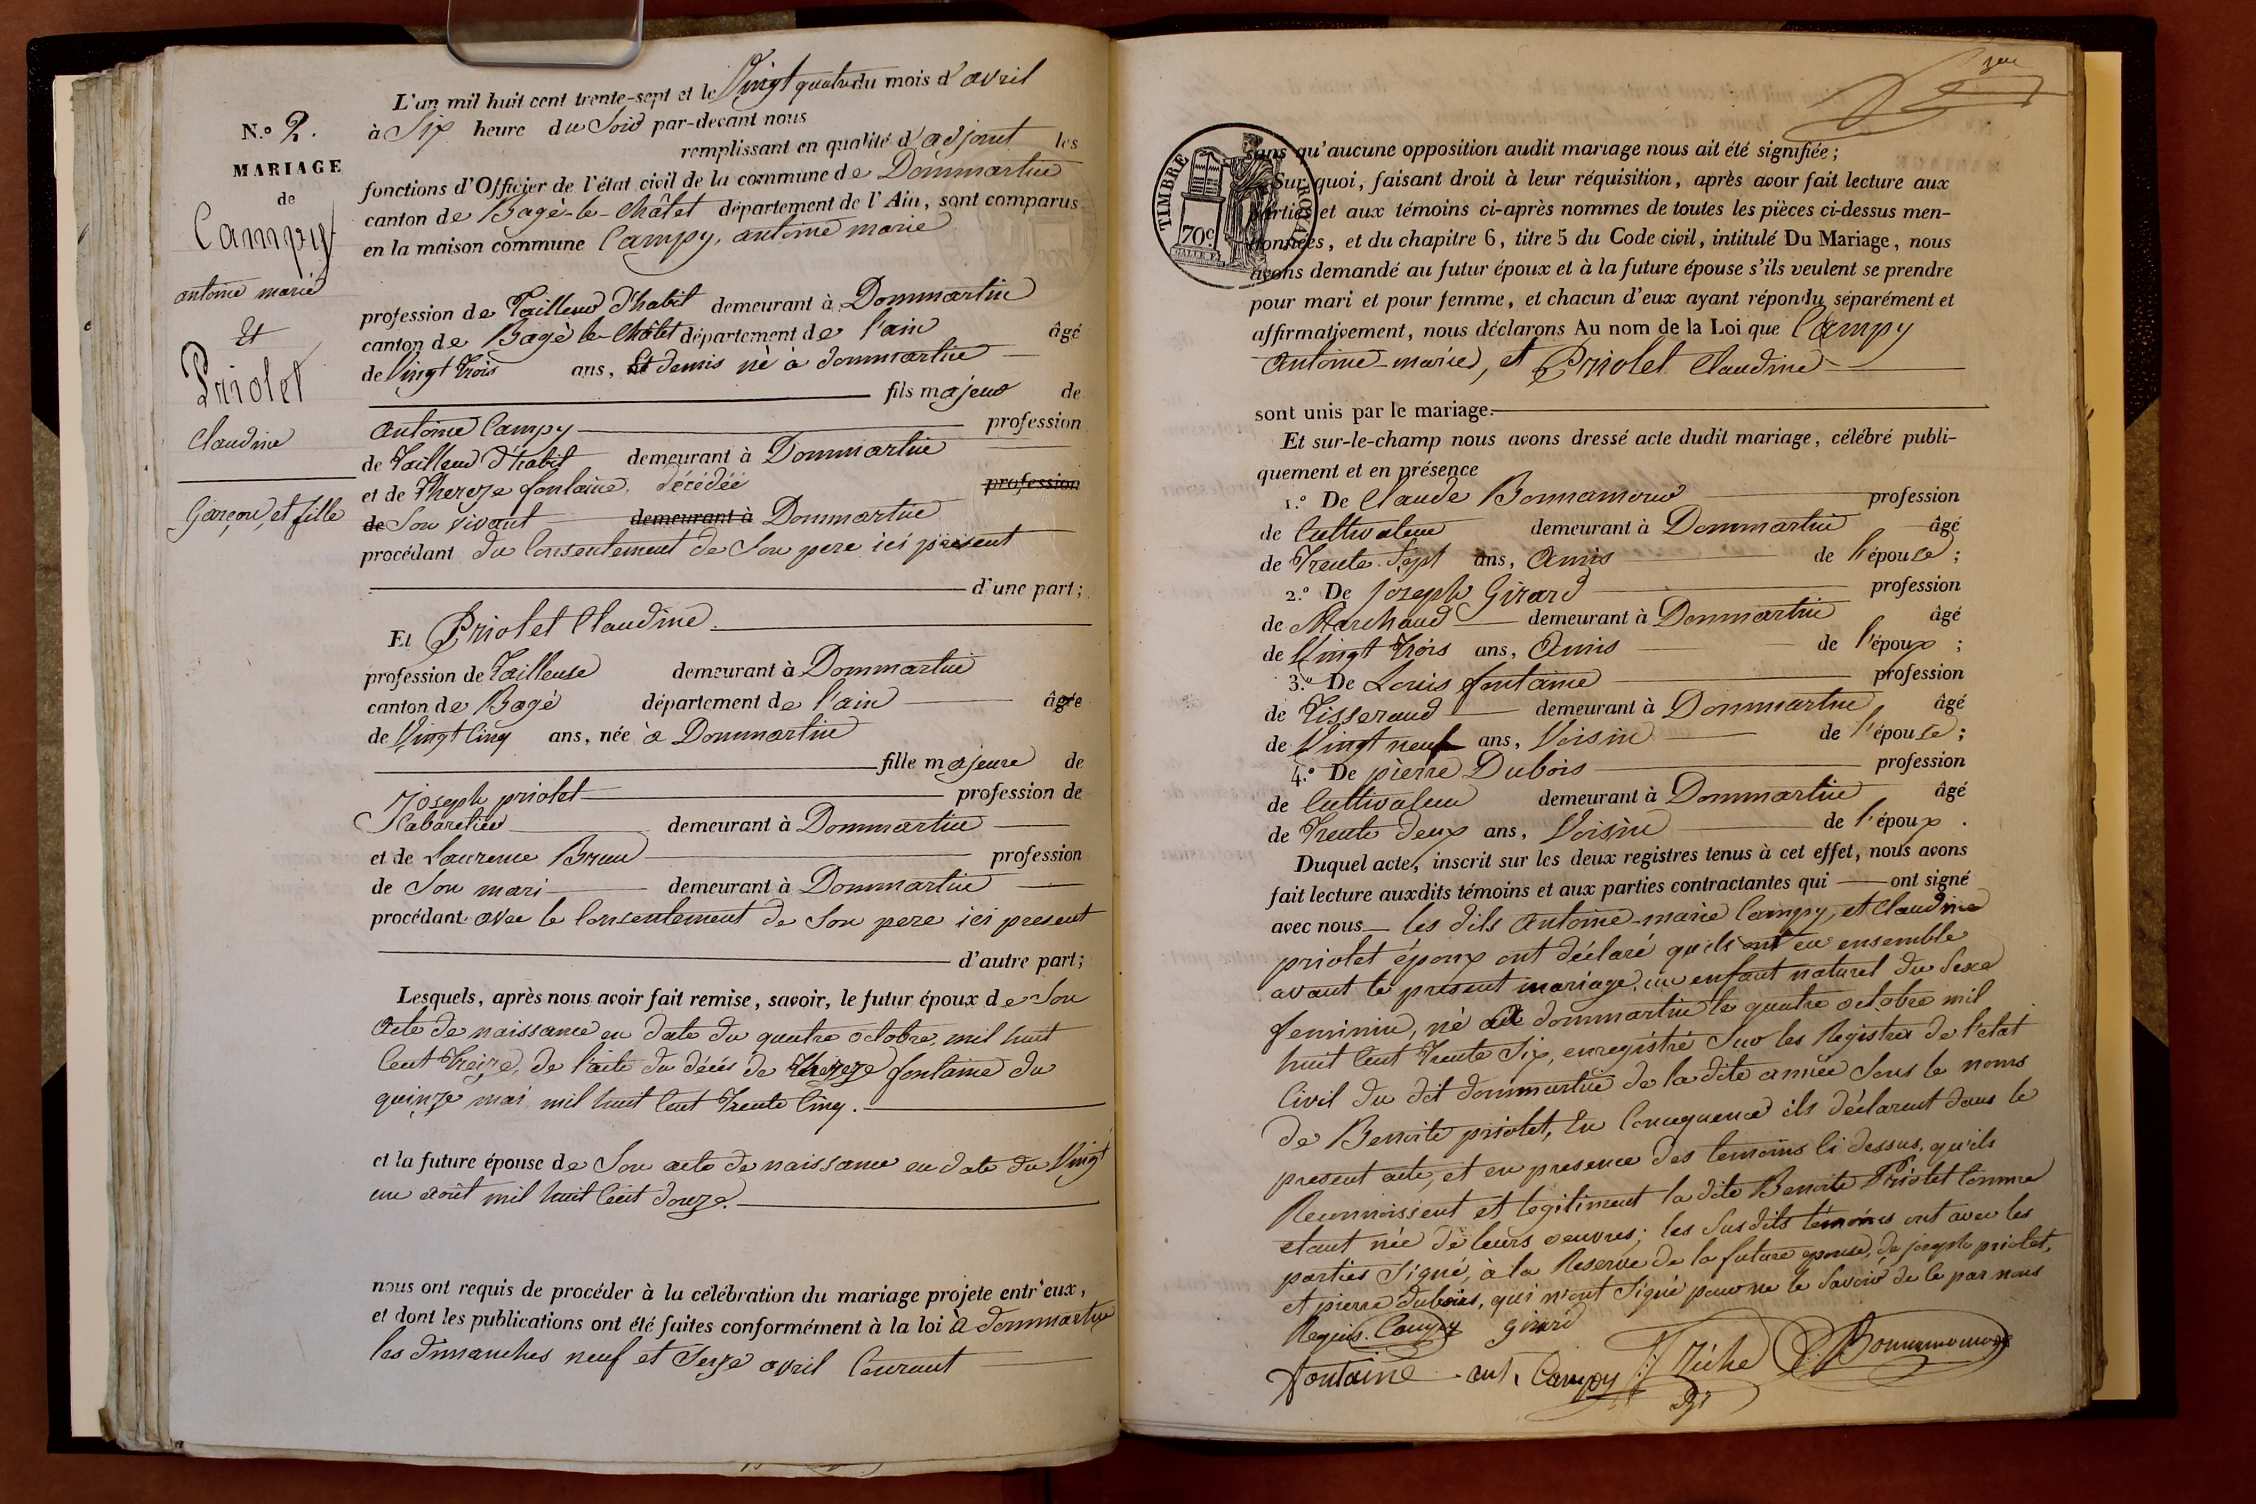 L'an mil huit cent trente-sept et le Vingt quatre du mois d'avril
N.º 2.
à Six heure du Soir par-devant nous
MARIAGE
remplissant en qualité d'adjoint les
de
fonctions d'Officier de l'état civil de la commune de Dommartin
Campy
canton de Bagé-le-Châtel département de l'Ain, sont comparus
en la maison commune Campy, antoine marie
antoine marie
profession de Tailleur d'habit demeurant à Dommartin
et
canton de Bagé le Châtel département de l'ain âgé
Priolet
de Vingt trois ans, et demis né à dommartin
fils majeur de
Claudine
antoine Campy profession
de Tailleur d'habit demeurant à Dommartin
et de Thereze fontaine, décédée profession
Garçon, et fille
de Son vivant demeurant à Dommartin
procédant du Consentement de Son pere ici présent
d'une part;
Et Priolet Claudine
profession de Tailleuse demeurant à Dommartin
canton de Bagé département de l'ain âgée
de Vingt Cinq ans, née à Dommartin
fille majeure de
Joseph priolet profession de
Cabaretier demeurant à Dommartin
et de Laurence Brun profession
de Son mari demeurant à Dommartin
procédant avec le Consentement de Son pere ici present
d'autre part;
Lesquels, après nous avoir fait remise, savoir, le futur époux de Son
acte de naissance en date du quatre octobre mil huit
Cent treize, de l'acte du décés de thereze fontaine du
quinze mai mil huit Cent trente Cinq.
et la future épouse de Son acte de naissance en date du Vingt
un août mil huit Cent douze.
nous ont requis de procéder à la célébration du mariage projeté entr'eux,
et dont les publications ont été faites conformément à la loi à dommartin
les dimanches neuf et Seize avril Courant
TIMBRE ROYAL
70c
sans qu'aucune opposition audit mariage nous ait été signifiée;
Sur quoi, faisant droit à leur réquisition, après avoir fait lecture aux
parties et aux témoins ci-après nommes de toutes les pièces ci-dessus men-
tionnées, et du chapitre 6, titre 5 du Code civil, intitulé Du Mariage, nous
avons demandé au futur époux et à la future épouse s'ils veulent se prendre
pour mari et pour femme, et chacun d'eux ayant répondu séparément et
affirmativement, nous déclarons Au nom de la Loi que Campy
Antoine-marie, et Priolet Claudine
sont unis par le mariage.
Et sur-le-champ nous avons dressé acte dudit mariage, célébré publi-
quement et en présence
1.º De Claude Bonnamour profession
de Cultivateur demeurant à Dommartin âgé
de Trente-Sept ans, Amis de l'épouse;
2.º De Joseph Girard profession
de Marchand demeurant à Dommartin âgé
de Vingt trois ans, Amis de l'époux;
3.º De Louis fontaine profession
de Tisserand demeurant à Dommartin âgé
de Vingt neuf ans, Voisin de l'épouse;
4.º De pierre Dubois profession
de Cultivateur demeurant à Dommartin âgé
de Trente deux ans, Voisin de l'époux.
Duquel acte, inscrit sur les deux registres tenus à cet effet, nous avons
fait lecture auxdits témoins et aux parties contractantes qui ont signé
avec nous les dits Antoine-marie Campy, et Claudine
priolet époux ont déclaré qu'ils ont eu ensemble
avant le present mariage un enfant naturel du Sexe
feminin, né à dommartin le quatre octobre mil
huit Cent trente Six, enregistré Sur les Registres de l'etat
Civil du dit dommartin de la dite année Sous le noms
de Benoite priolet, En Consequence ils déclarent dans le
present acte, et en presence des temoins Ci dessus, qu'ils
Reconnoissent et legitiment la dite Benoite Priolet Comme
etant née de leurs oeuvres; les Susdits témoins ont avec les
parties Signé, à la Reserve de la future epouse, de joseph priolet,
et pierre dubois, qui n'ont Signé pour ne le Savoir de ce par nous
Requis. Campy Girard
Fontaine ant. Campy Bonnamour